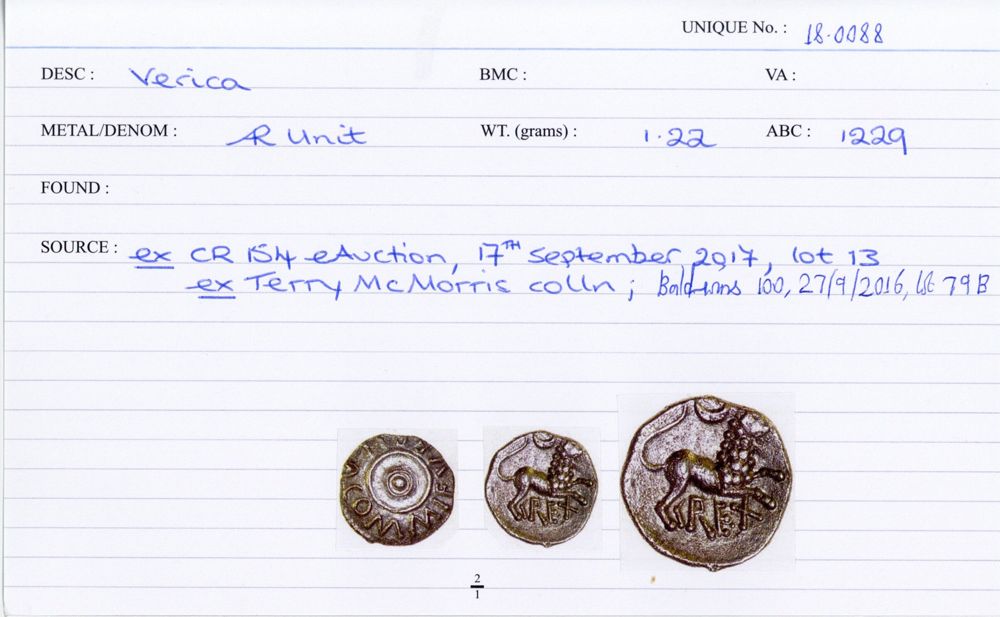 UNIQUE No. : 18.0088
DESC : Verica BMC : VA :
METAL/DENOM : AR Unit WT. (grams) : 1.22 ABC : 1229
FOUND :
SOURCE : ex CR 154 eAuction, 17TH September 2017, lot 13
ex Terry McMorris colln ; Baldwins 100, 27/9/2016, lot 79B
COMMI F
REX
REX
2
1